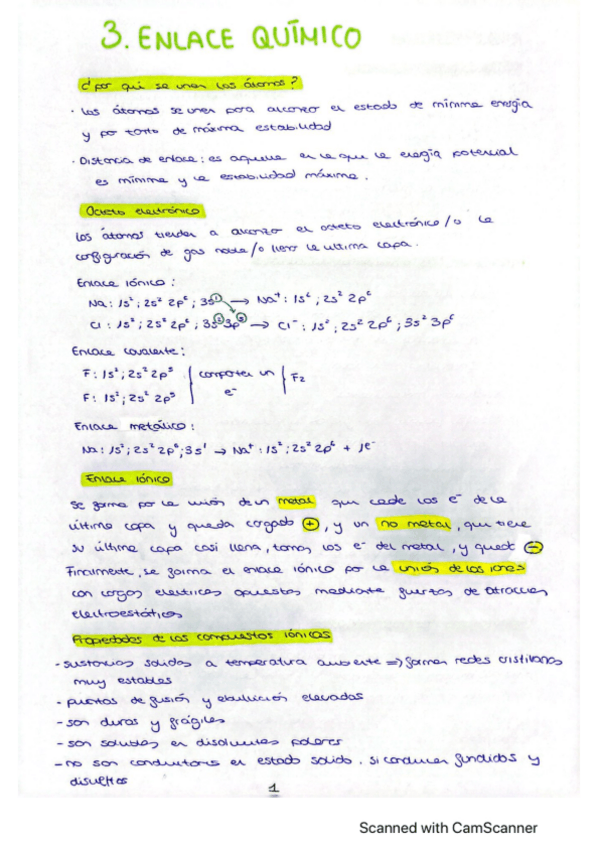 3. ENLACE QUÍMICO
¿por qué se unen los átomos?
· los átomos se unen para alcanzar el estado de mínima energía
y por tanto de máxima estabilidad
· Distancia de enlace: es aquella en la que la energía potencial
es mínima y la estabilidad máxima.
Octeto electrónico
los átomos tienden a alcanzar el octeto electrónico/o la
configuración de gas noble/o lleno la ultima capa.
Enlace iónico:
Na: 1s²; 2s² 2p⁶; 3s① → Na⁺: 1s²; 2s² 2p⁶
Cl: 1s²; 2s² 2p⁶; 3s② 3p⑤ → Cl⁻: 1s²; 2s² 2p⁶; 3s² 3p⁶
Enlace covalente:
F: 1s²; 2s² 2p⁵ | comparten un | F₂
F: 1s²; 2s² 2p⁵ | e⁻
Enlace metálico:
Na: 1s²; 2s² 2p⁶; 3s¹ → Na⁺: 1s²; 2s² 2p⁶ + 1e⁻
Enlace iónico
se forma por la unión de un metal que cede los e⁻ de la
última capa y queda cargado ⊕, y un no metal, que tiene
su última capa casi llena, toma los e⁻ del metal, y queda ⊖
Finalmente, se forma el enlace iónico por la unión de los iones
con cargas electricas opuestas mediante fuerzas de atracción
electroestáticas
Propiedades de los compuestos iónicos
- sustancias sólidas a temperatura ambiente => forman redes cristalinas
muy estables
- puntos de fusión y ebullición elevados
- son duros y frágiles
- son solubles en disolventes polares
- no son conductores en estado sólido. si conducen fundidos y
disueltos
1
Scanned with CamScanner